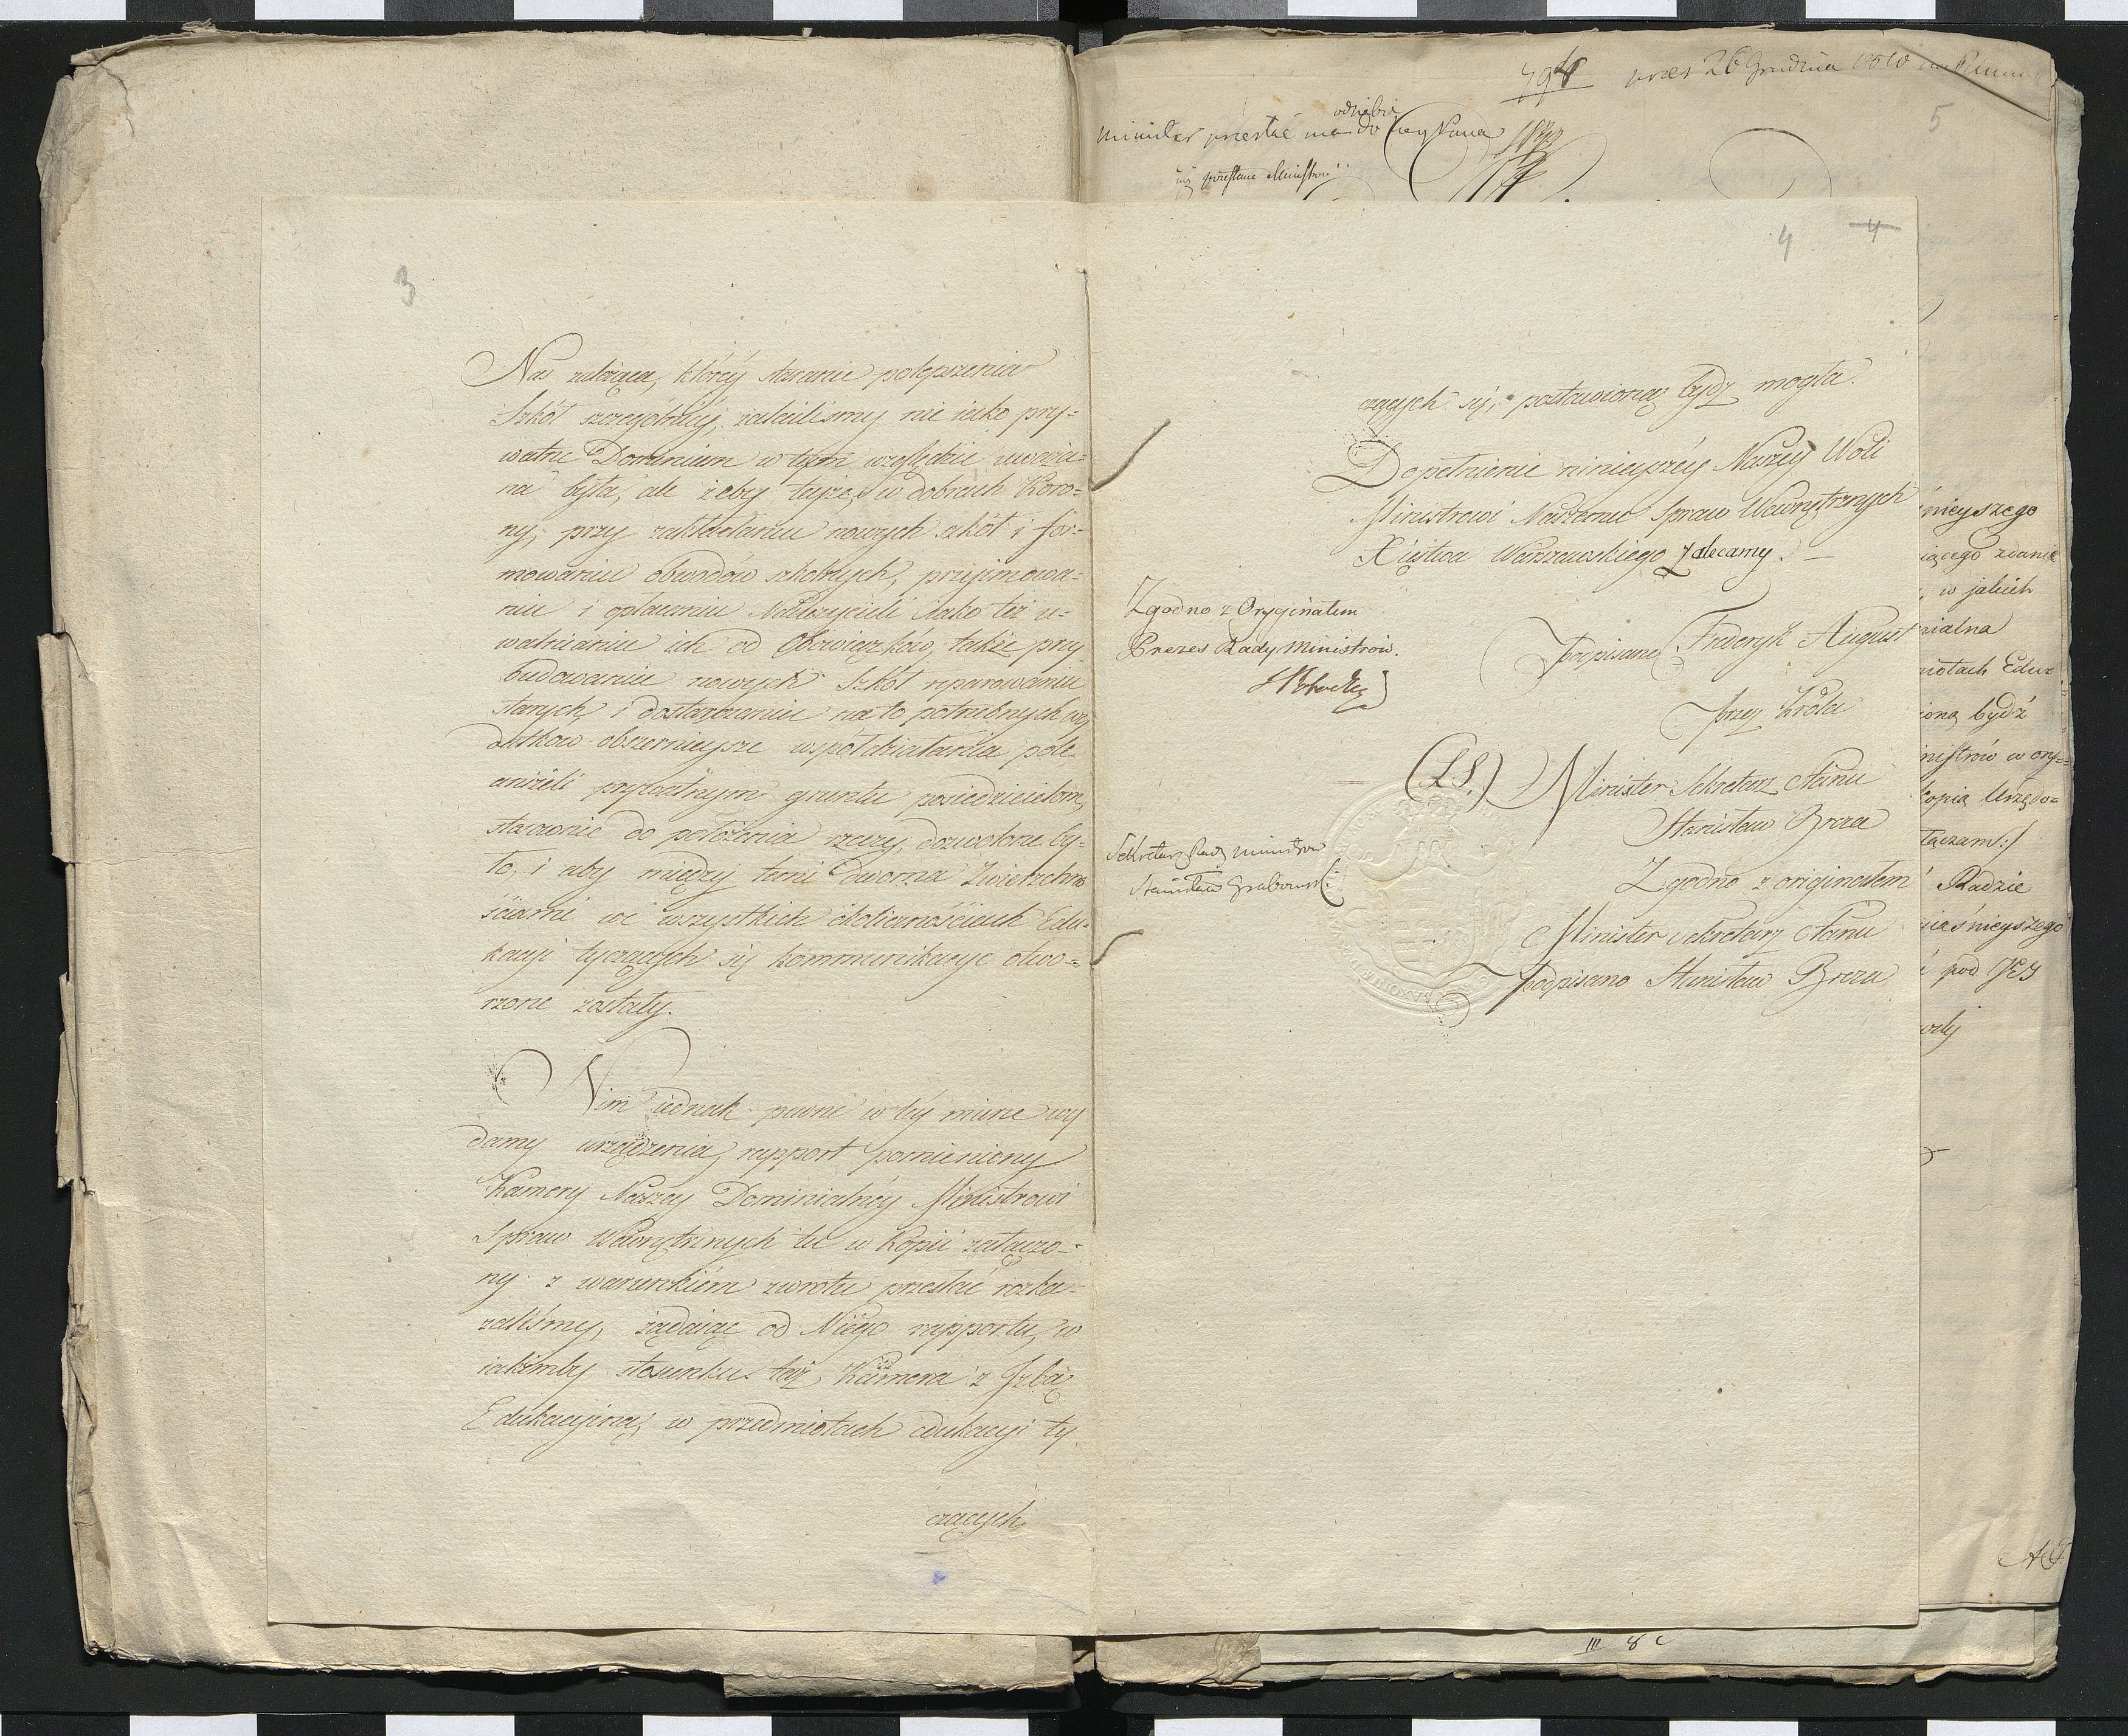 3
Nas należąca, któréy staranie polepszenia
Szkół szczególniéy zaleciliśmy nie iako pry=
watne Dominium w tym względzie uważa=
na była, ale żeby teyże, w dobrach Koro=
ny, przy zakładaniu nowych szkół i for=
mowaniu obwodów szkolnych, przyimowa=
niu i opłacaniu Nauczycieli iako też u=
walnianiu ich od Obowiązków, także przy
budowaniu nowych Szkół reparowaniu
starych i dostarczaniu na to potrzebnych wy
datków obszernieysze współdziałania pole
aniżeli prywatnym gruntu posiedzicielom,
stosownie do położenia rzeczy, dozwolone by=
ło, i aby między temi dwoma Zwierzchno
ściami we wszystkich okolicznościach Edu=
kacyi tyczących się kommunikacye otwo=
rzone zostały.
Nim iednak pewne w téy mierze wy
damy urządzenia, rapport pomieniony
Kamery Naszey Dominialnéy Ministrowi
Spraw Wewnętrznych tu w Kopii załączo=
ny z warunkiem zwrotu przesłać rozka=
zaliśmy, żądaiąc od Niego rapportu, w
iakimby stosunku taż Kamera z Izbą
Edukacyiną, w przedmiotach edukacyi ty
czących
794 prez 26 Grudnia 1810
5
minister przesłać ma do
4 4
czących się, postawioną bydź mogła.
Dopełnienie ninieyszéy Naszéy Woli
Ministrowi Naszemu Spraw Wewnętrznych
Xięstwa Warszawskiego zalecamy. —
Zgodno z Oryginałem
Prezes Rady Ministrów.
podpisano Frideryk August
przez Króla
(L.S.) Minister Sekretarz Stanu
Stanisław Breza
Sekretarz Rady Ministrów
Stanisław Grabowski
Zgodno z originałem
Minister Sekretarz Stanu
podpisano Stanisław Breza
nieyszego
iącego zdanie
w jakich
nialna
miotach Eduk
ioną bydź
nistrów w ory=
kopią Urzędo=
łączam:/
Radzie
iaśnieyszego
pod JEJ
III 8 c